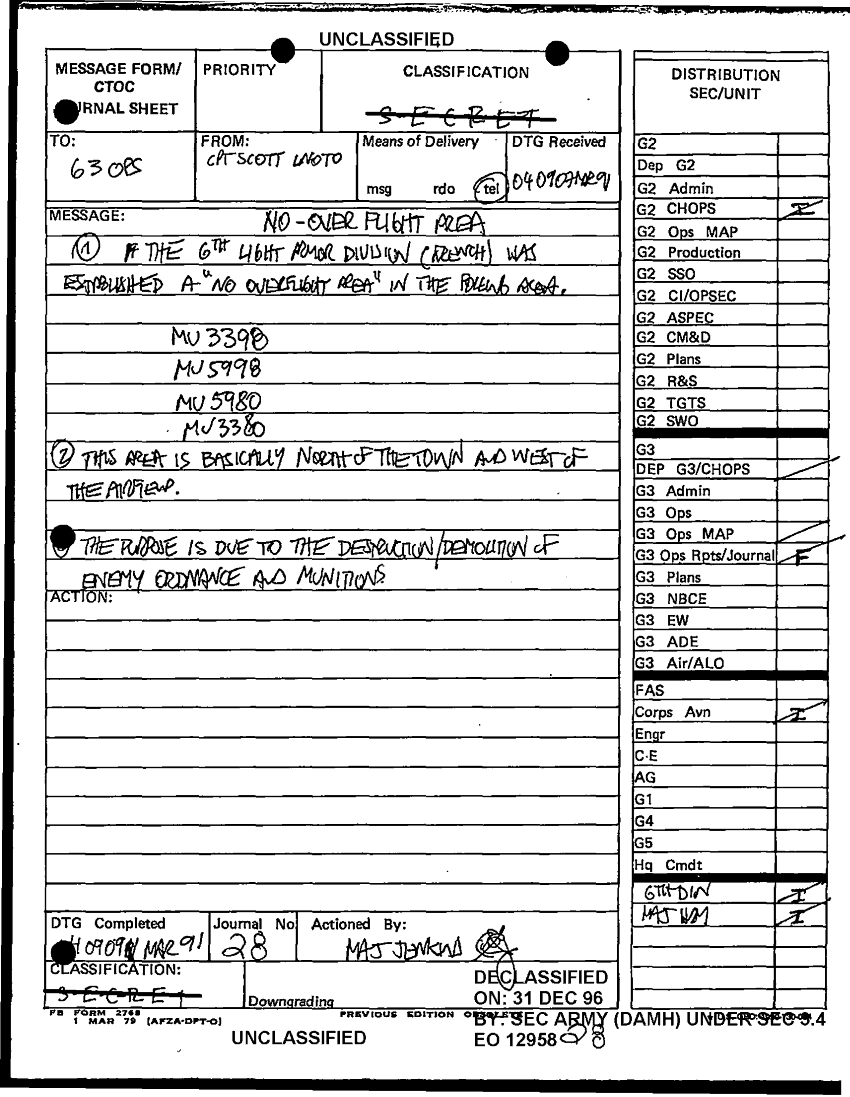 UNCLASSIFIED
MESSAGE FORM/
CTOC
RNAL SHEET
PRIORITY
CLASSIFICATION
SECRET
TO:
G3 OPS
FROM:
CPT SCOTT LNOTO
Means of Delivery
msg rdo tel
DTG Received
040907MAR91
MESSAGE:
NO-OVER FLIGHT AREA
① THE 6TH LIGHT ARMOR DIVISION (FRENCH) WAS
ESTABLISHED A "NO OVERFLIGHT AREA" IN THE AREA.
MU 3398
MU 5998
MU 5980
MU 3380
② THIS AREA IS BASICALLY NORTH OF THE TOWN AND WEST OF
THE AIRFIELD.
THE PURPOSE IS DUE TO THE DESTRUCTION/DEMOLITION OF
ENEMY ORDNANCE AND MUNITIONS
ACTION:
DTG Completed
40909 MAR 91
Journal No
28
Actioned By:
MAJ JENKINS
CLASSIFICATION:
SECRET
Downgrading
FB FORM 2768
1 MAR 79 (AFZA-DPT-O)
PREVIOUS EDITION OBSOLETE
UNCLASSIFIED
DECLASSIFIED
ON: 31 DEC 96
BY: SEC ARMY (DAMH) UNDER SEC 3.4
EO 12958
28
DISTRIBUTION
SEC/UNIT
G2
Dep G2
G2 Admin
G2 CHOPS I
G2 Ops MAP
G2 Production
G2 SSO
G2 CI/OPSEC
G2 ASPEC
G2 CM&D
G2 Plans
G2 R&S
G2 TGTS
G2 SWO
G3
DEP G3/CHOPS
G3 Admin
G3 Ops
G3 Ops MAP
G3 Ops Rpts/Journal F
G3 Plans
G3 NBCE
G3 EW
G3 ADE
G3 Air/ALO
FAS
Corps Avn I
Engr
C-E
AG
G1
G4
G5
Hq Cmdt
6TH DIV I
MAJ I